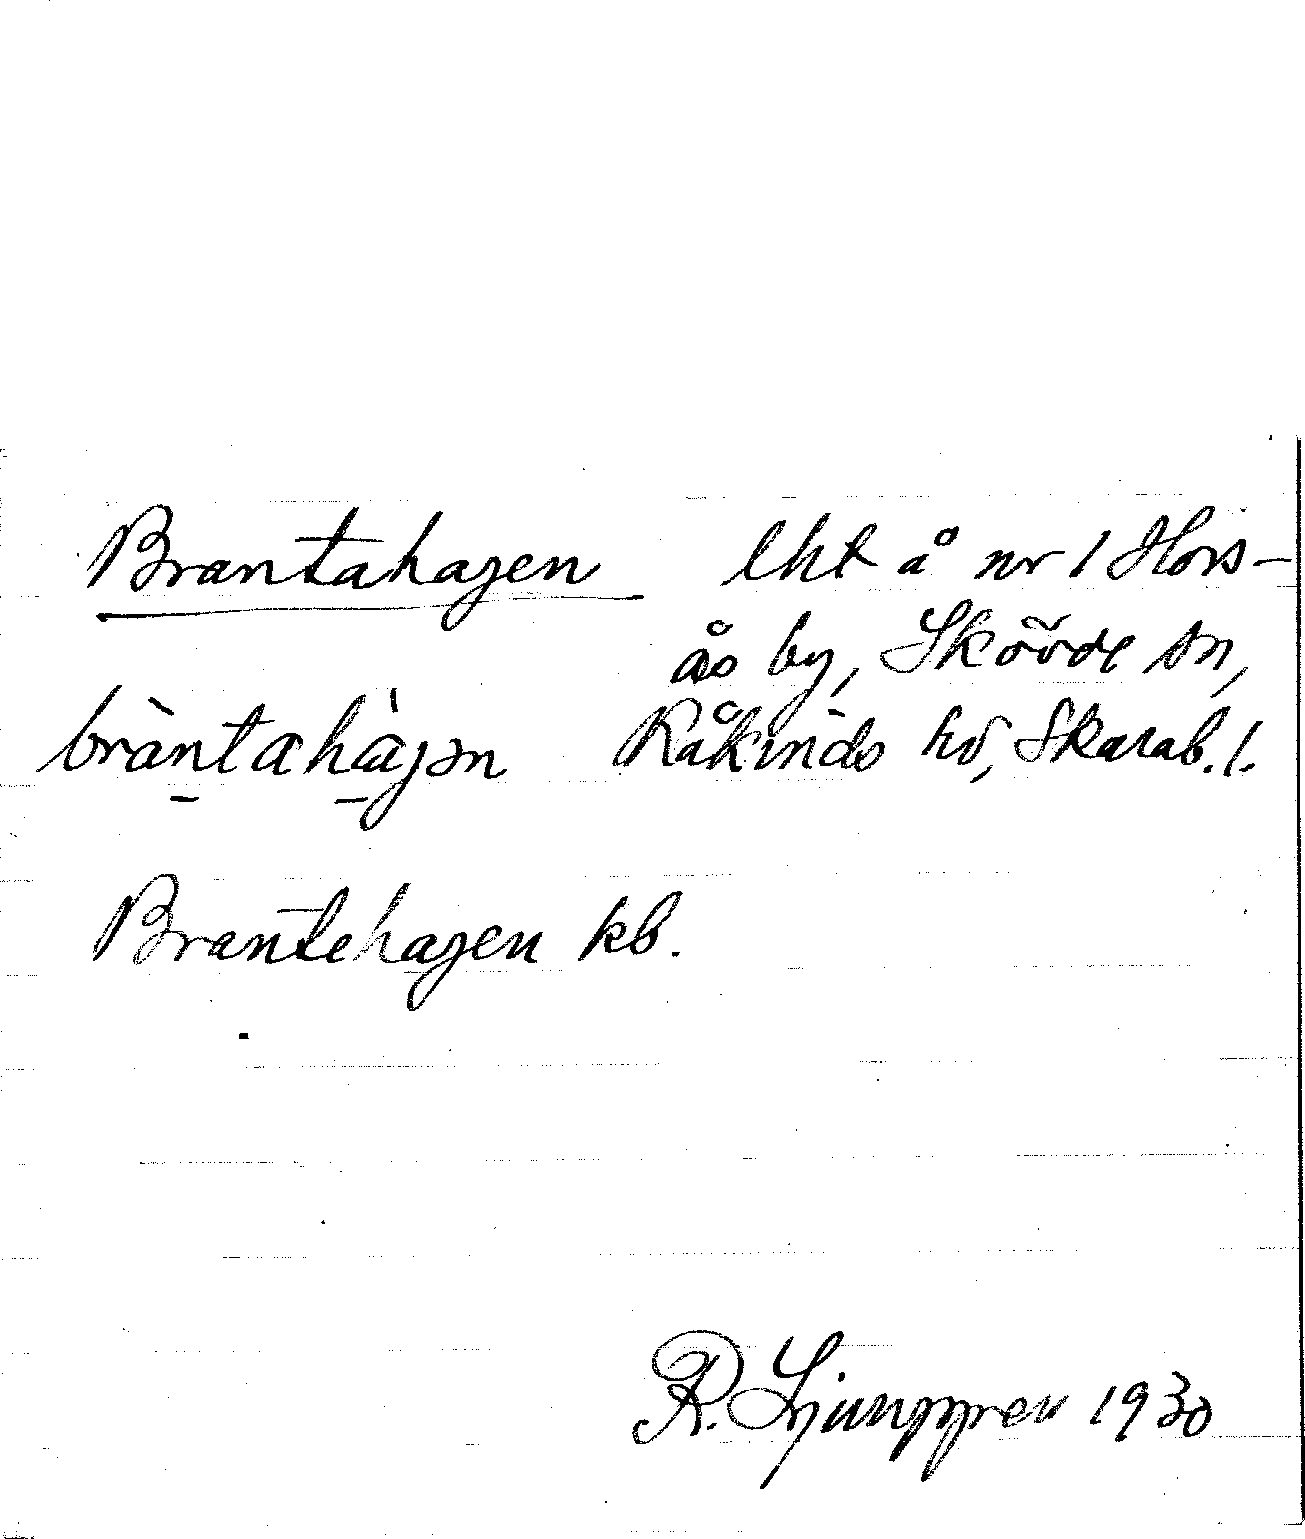 Brantahagen lht å nr 1 Hors-
ås by, Skövde sn,
bràntahàgən Kåkinds hd, Skarab. l.
Brantehagen kb.
R. Ljunggren 1930